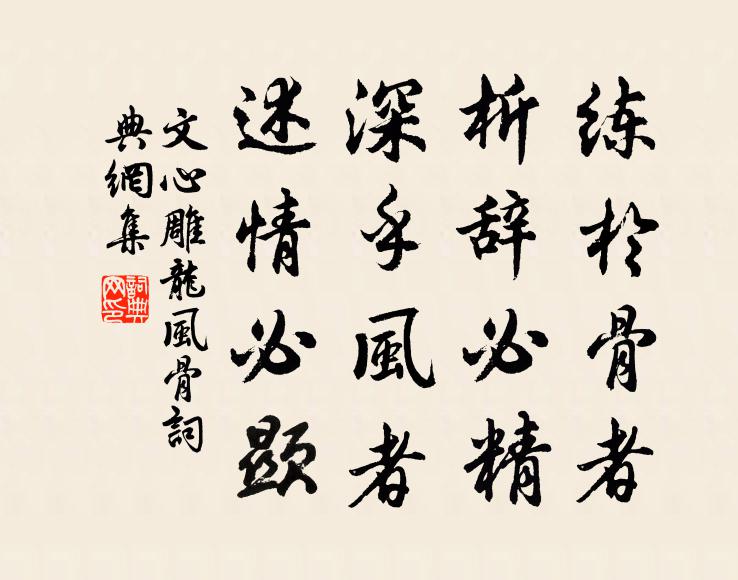 练於骨者
析辞必精
深乎风者
述情必顯
文心雕龍風骨詞
典網集
詞典
网印